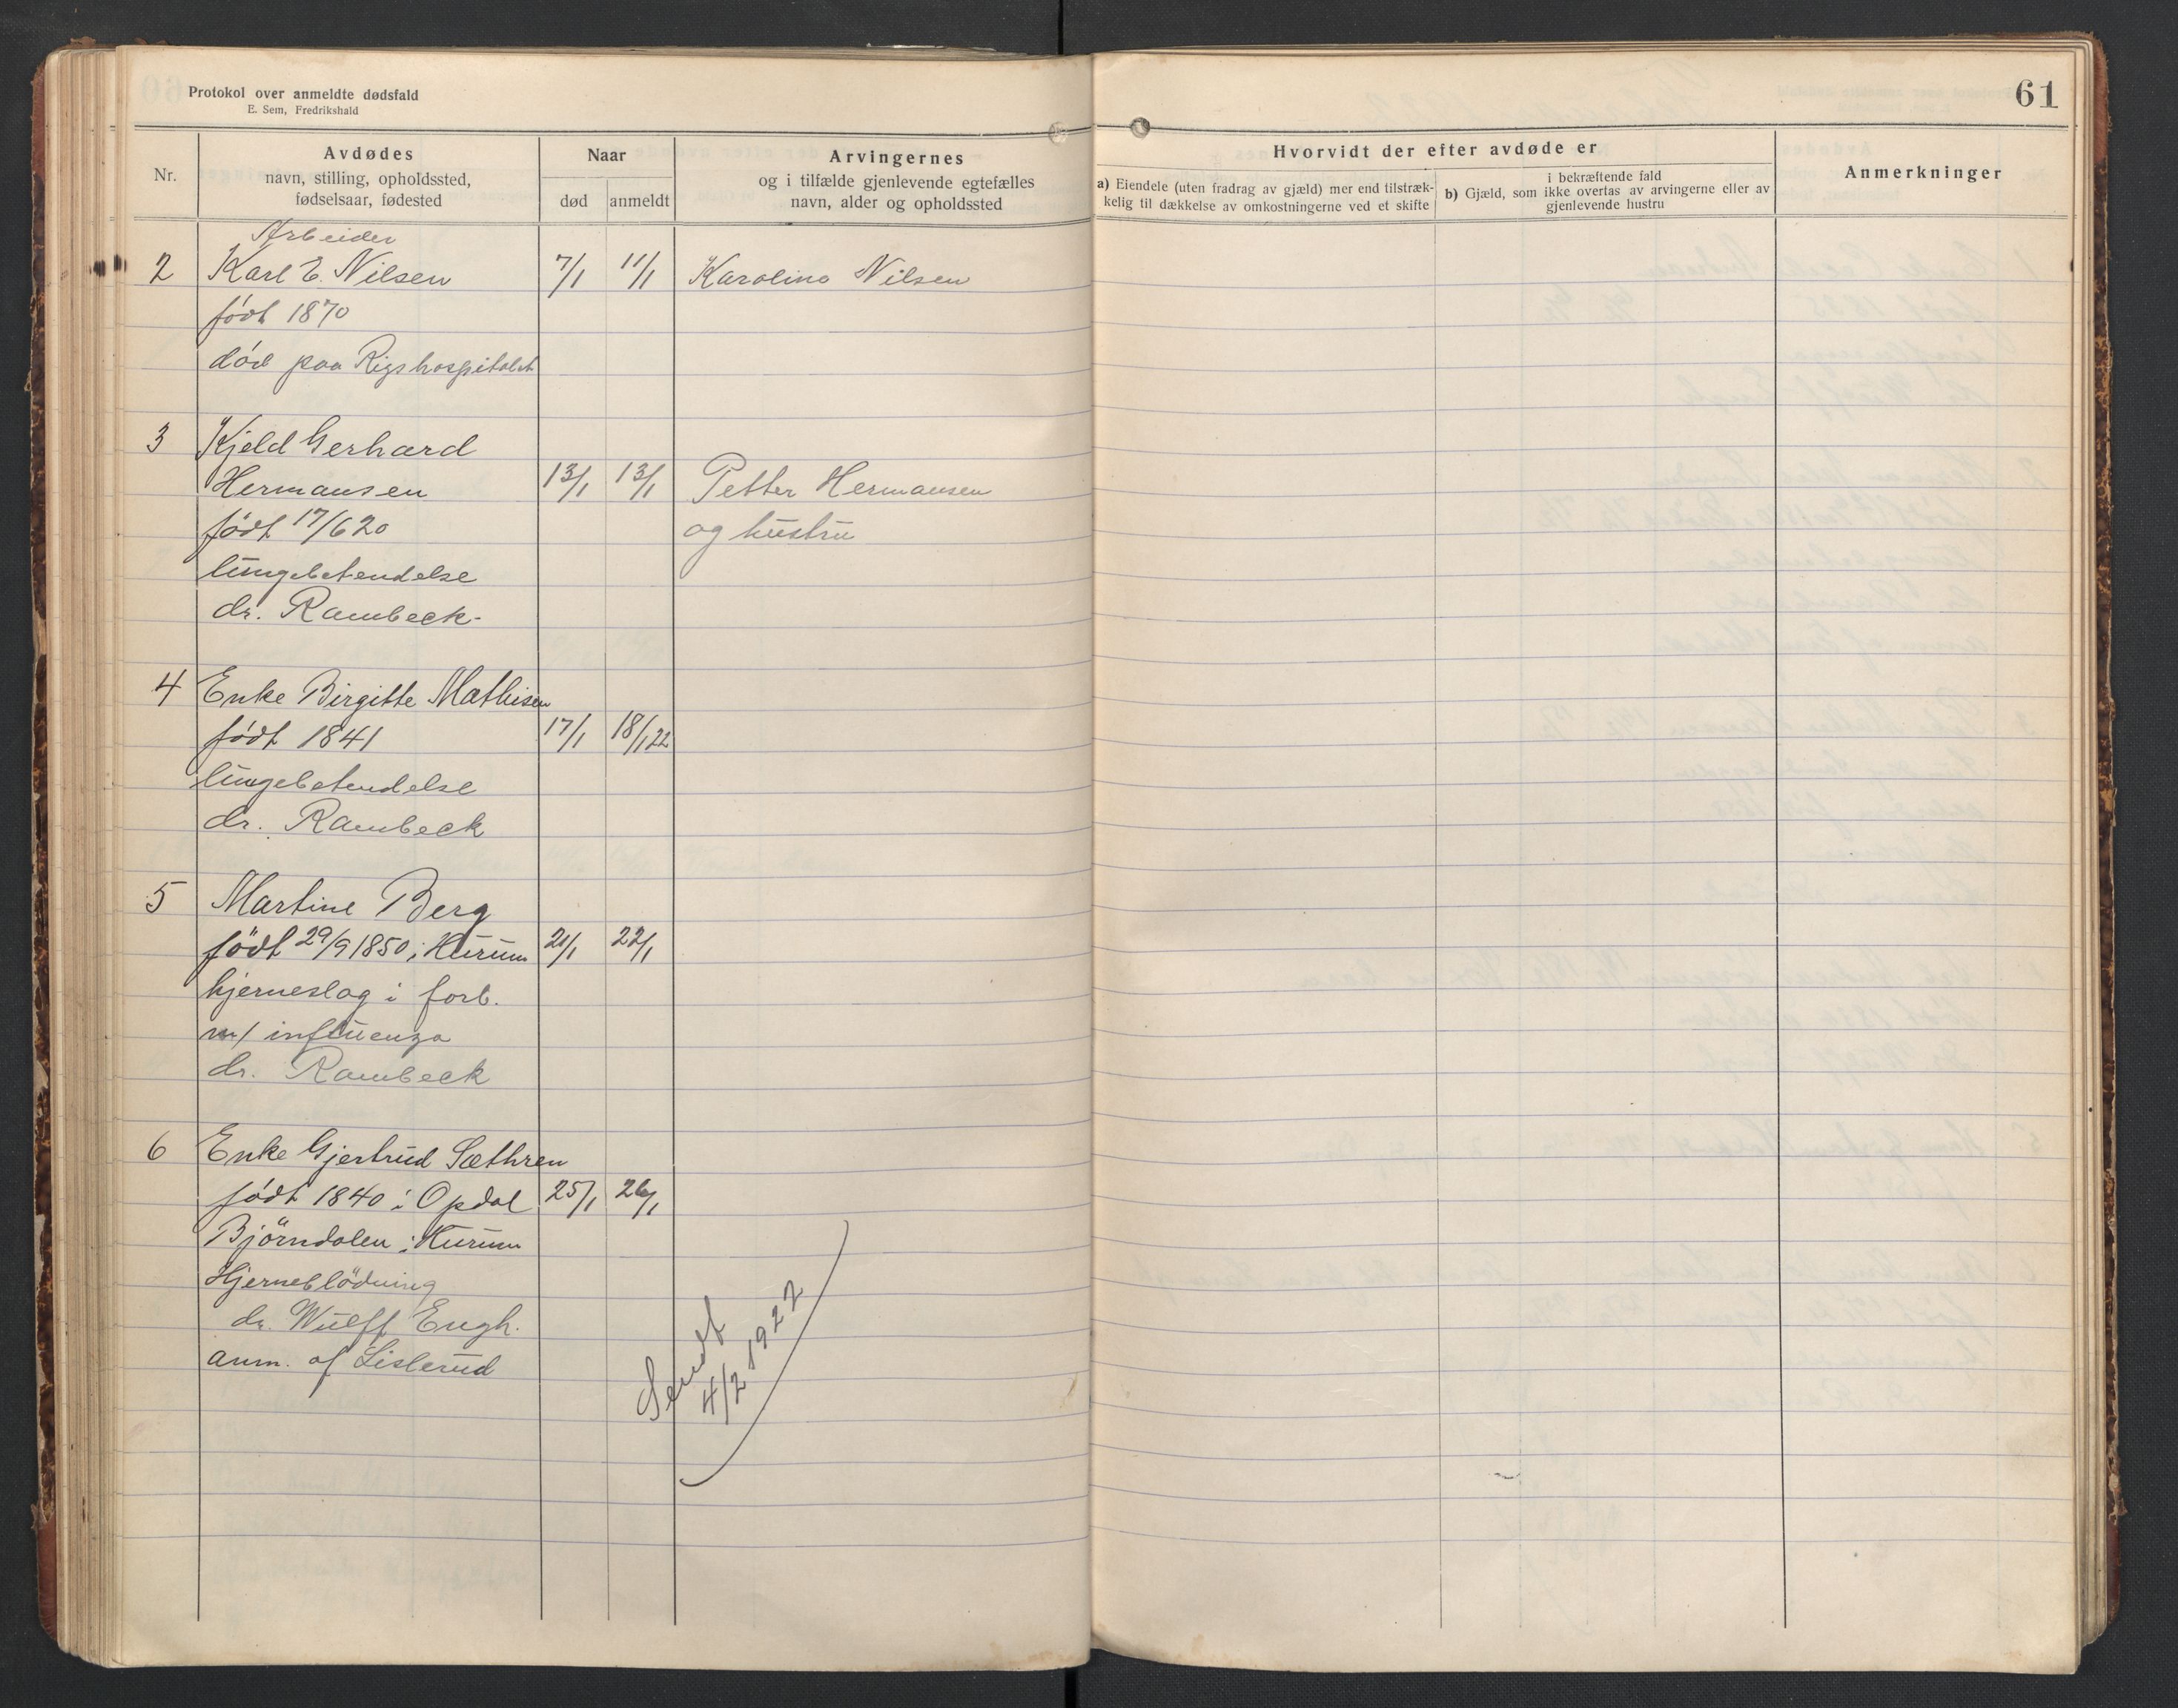 Protokol over anmeldte dødsfald
E. Sem, Fredrikshald
61
Nr.
Avdødes
navn, stilling, opholdssted,
fødselsaar, fødested
Naar
død
anmeldt
Arvingernes
og i tilfælde gjenlevende egtefælles
navn, alder og opholdssted
Hvorvidt der efter avdøde er
a) Eiendele (uten fradrag av gjæld) mer end tilstræk-
kelig til dækkelse av omkostningerne ved et skifte
i bekræftende fald
b) Gjæld, som ikke overtas av arvingerne eller av
gjenlevende hustru
Anmerkninger
Arbeider
2 Karl E. Nilsen 7/1 11/1 Karoline Nilsen
født 1870
död paa Rigshospitalet
3 Kjeld Gerhard
Hermansen 13/1 13/1 Petter Hermansen
født 17/6 20 og hustru
lungebetendelse
dr. Rambeck-
4 Enke Birgitte Mathisen
født 1841 17/1 18/1 22
lungebetendelse
dr. Rambeck
5 Martine Berg
født 29/9 1850 i Hurum 21/1 22/1
hjerneslag i forb.
m/ influenza
dr. Rambeck
6 Enke Gjertrud Sæthren
født 1840 i Opdal 25/1 26/1
Björndalen i Hurum
Hjerneblödning
dr. Wulff Engh.
anm. af Lislerud
Sendt
4/2 1922